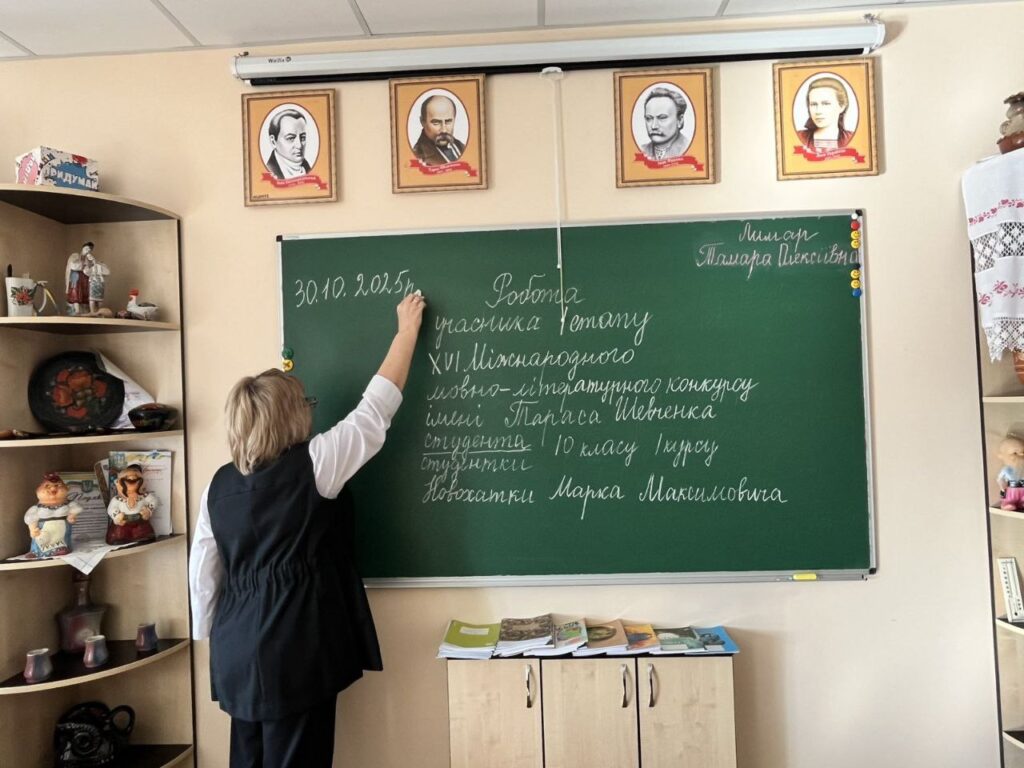 ПРИДУМАЙ
Wallis
30.10.2025р.
Лимар
Тамара Олексіївна
Робота
учасника І етапу
XVI Міжнародного
мовно-літературного конкурсу
імені Тараса Шевченка
студента 10 класу І курсу
студентки
Новохатки Марка Максимовича